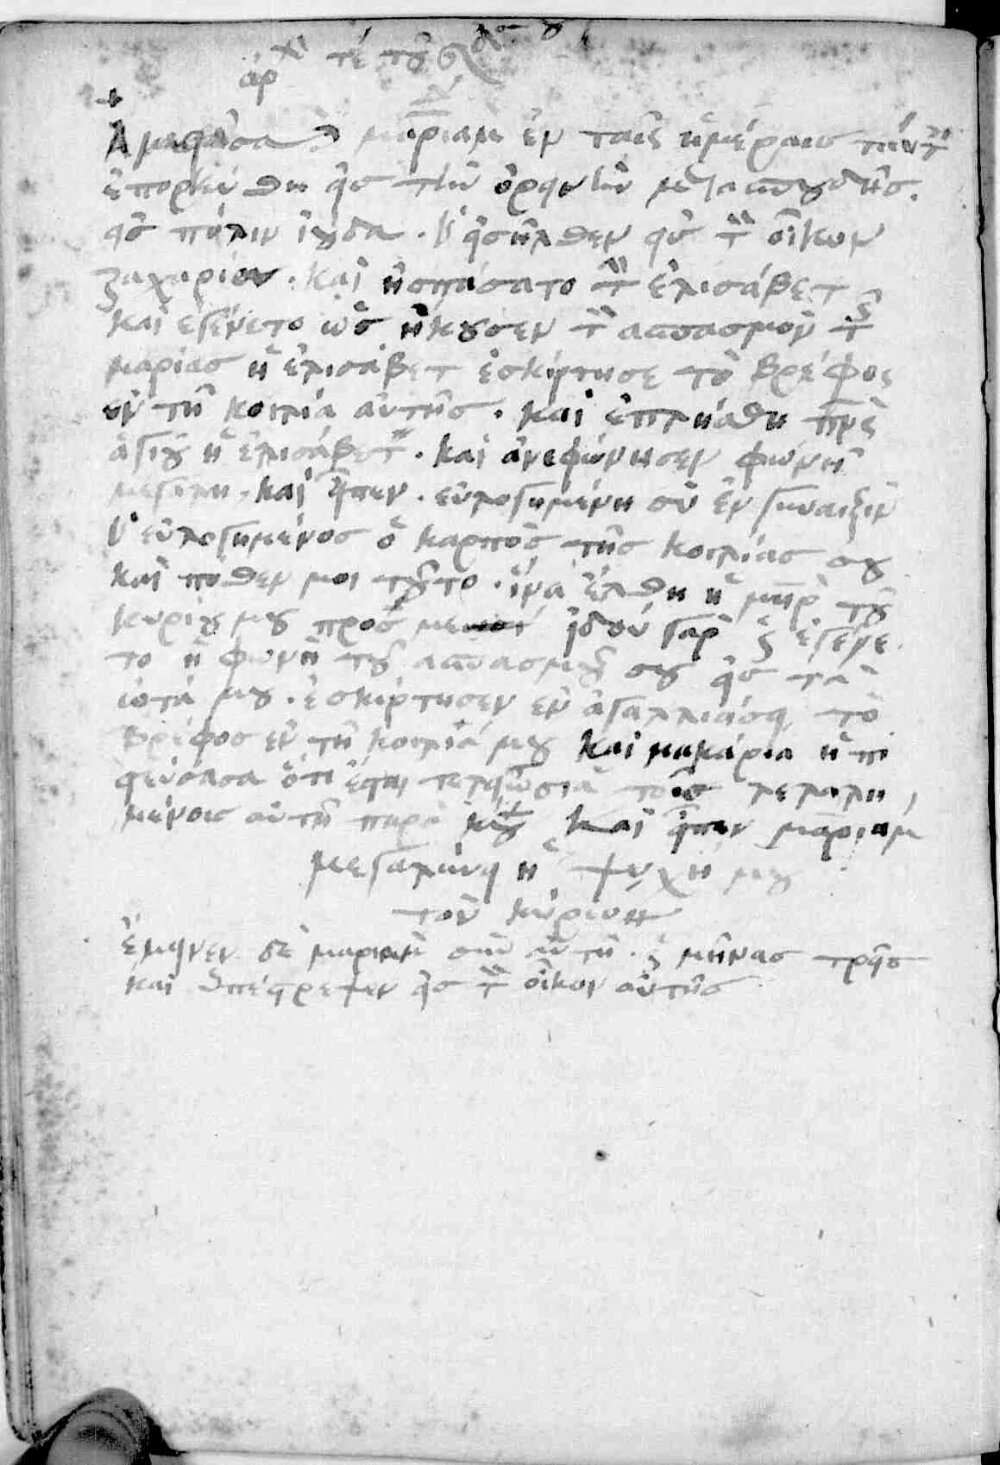 ἀρχ τε του
Ἀναστᾶσα μαριαμ ἐν ταῖς ἡμέραις ταύτ
ἐπορεύθη εἰς τὴν ὀρεινὴν μετα σπουδῆς.
εἰς πόλιν ἰούδα. κ εἰσῆλθεν εἰς τὸν οἶκον
ζαχαρίου. καὶ ἠσπάσατο τὴν ἐλισάβετ
καὶ ἐγένετο ὡς ἤκουσεν τὸν ασπασμὸν τῆς
μαρίας ἡ ἐλισάβετ ἐσκίρτησε τὸ βρέφος
ἐν τῇ κοιλία αὐτῆς. καὶ ἐπλήσθη πνς
ἁγίου ἡ ἐλισάβετ. καὶ ἀνεφώνησεν φωνῇ
μεγαλη. καὶ εἶπεν. εὐλογημένη σὺ ἐν γυναιξὶν
κ εὐλογημένος ὁ καρπὸς τῆς κοιλίας σου
καὶ πόθεν μοι τοῦτο. ἵνα ἔλθη ἡ μηρ τοῦ
κυρίου μου πρὸς με ἰδοὺ γαρ ὡς ἐγένε
το ἡ φωνὴ τοῦ ασπασμοῦ σου εἰς τὰ
ὠτά μου. ἐσκίρτησεν ἐν ἀγαλλιάσει τὸ
βρέφος ἐν τῇ κοιλία μου καὶ μακάρια ἡ πι
στεύσασα ὅτι ἔσται τελείωσις τοῖς λελαλη
μένοις αὐτῇ παρὰ κυ καὶ εἶπεν μαριαμ
μεγαλύνει ἡ ψυχή μου
τὸν κύριον
ἔμεινεν δὲ μαριαμ σὺν αὐτῇ ὡς μῆνας τρεῖς
καὶ ὑπέστρεψεν εἰς τὸν οἶκον αὐτῆς